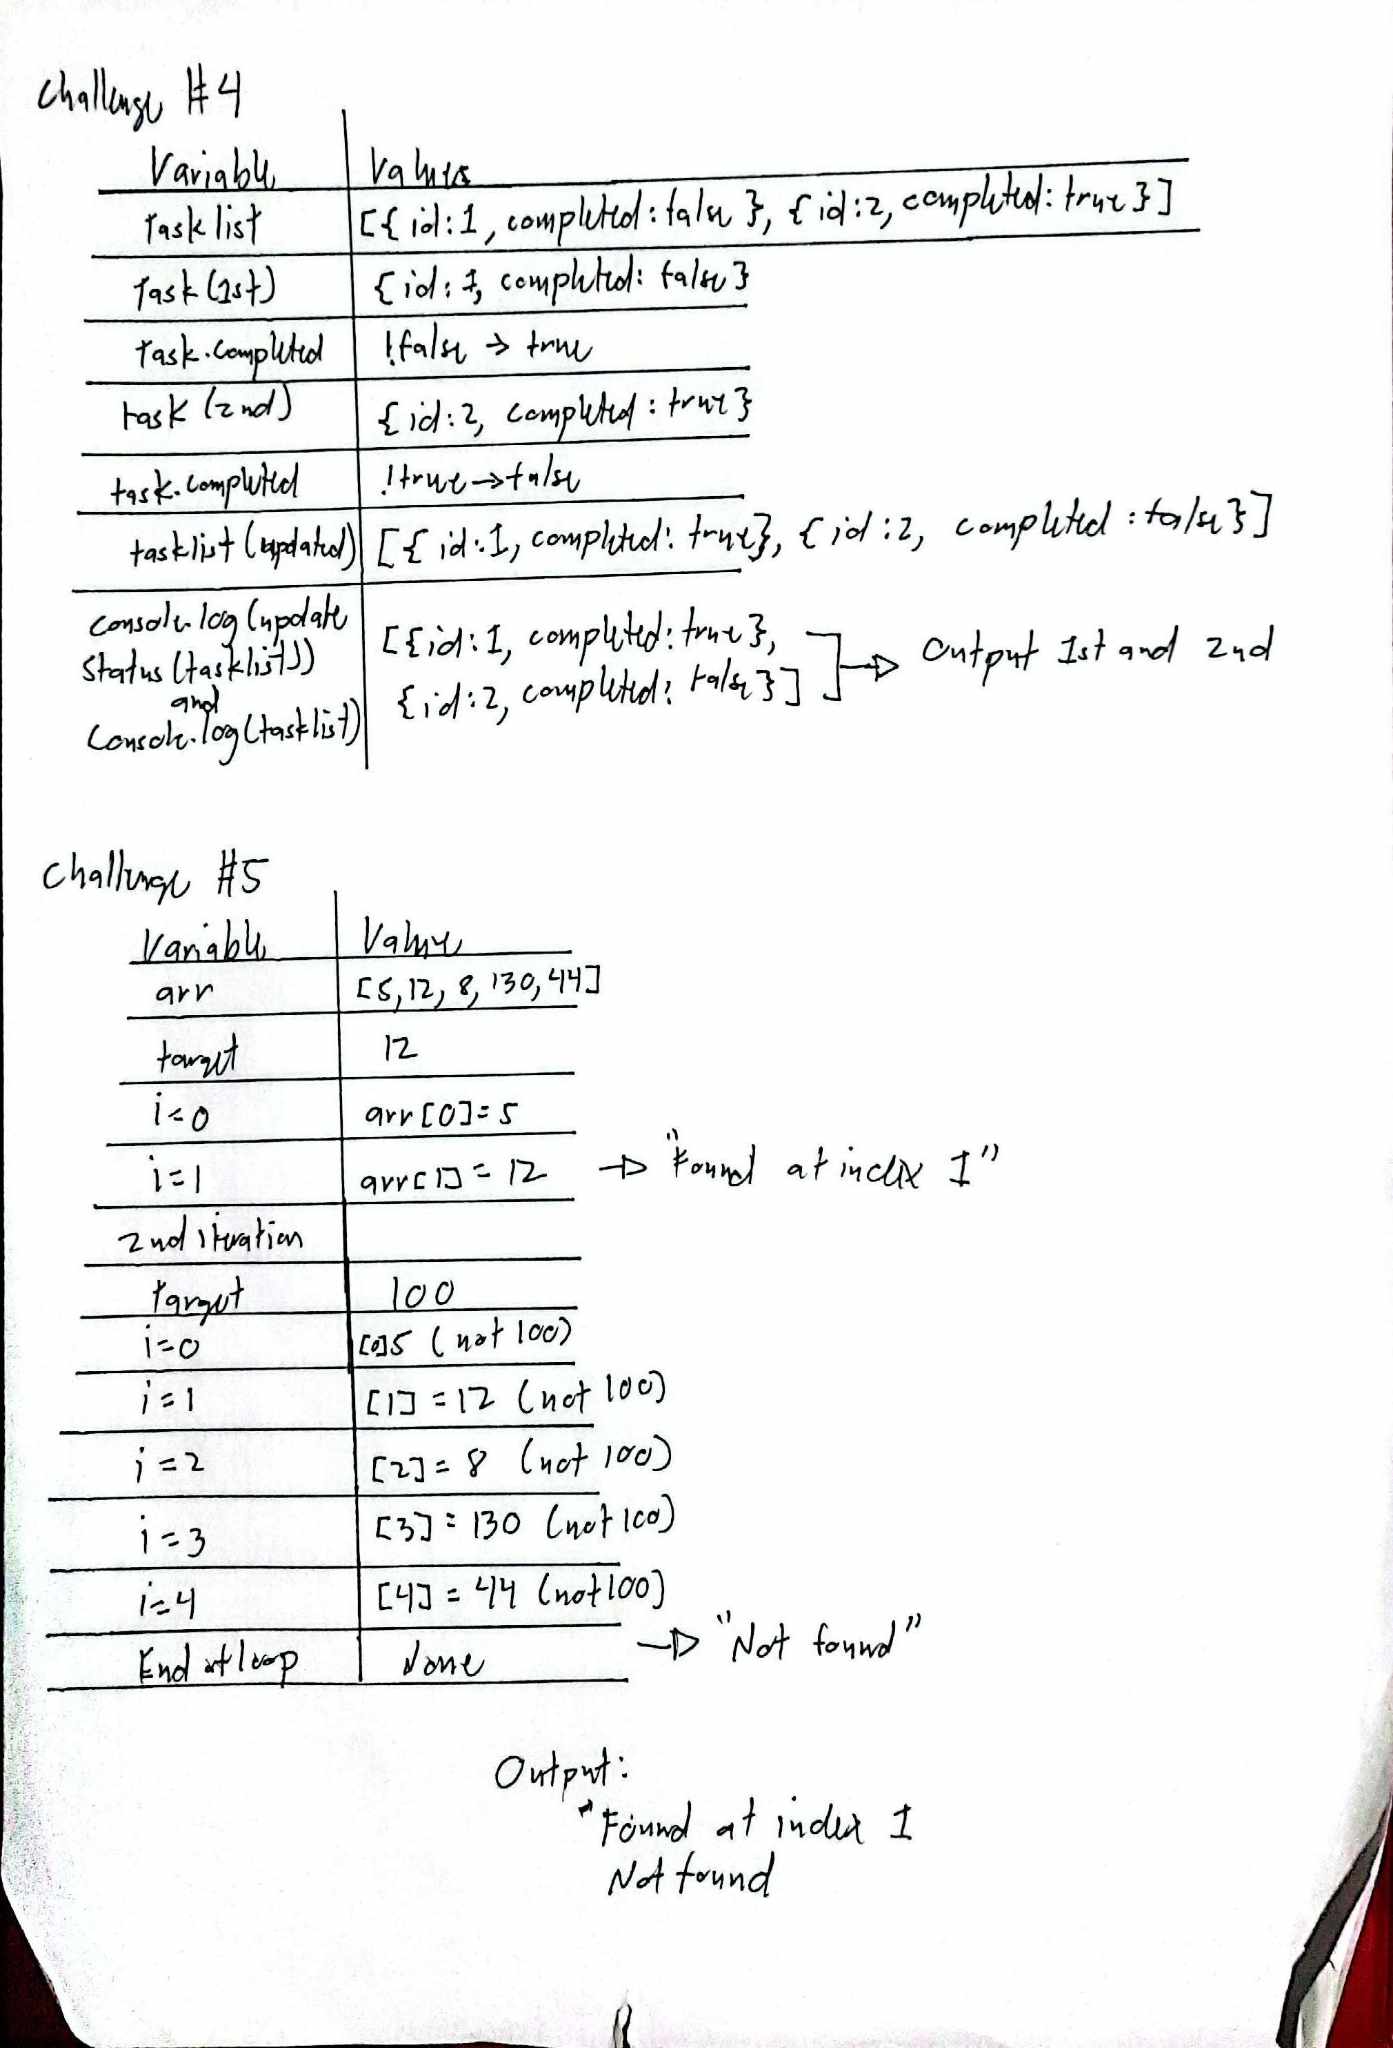 Challenge #4
Variable Values
Tasklist [{ id:1, completed: false }, { id:2, completed: true }]
Task (1st) { id: 1, completed: false }
Task.Completed !false → true
task (2nd) { id:2, completed: true }
task.completed !true → false
tasklist (updated) [{ id:1, completed: true }, { id:2, completed: false }]
console.log (update
Status (tasklist)) [{ id: 1, completed: true },
and {id:2, completed: false }] → Output 1st and 2nd
Console.log(tasklist)
Challenge #5
Variable Value
arr [5, 12, 8, 130, 44]
target 12
i=0 arr[0]=5
i=1 arr[1] = 12 → "Found at index 1"
2nd iteration
Target 100
i=0 [0]5 (not 100)
i=1 [1] = 12 (not 100)
i=2 [2] = 8 (not 100)
i=3 [3] = 130 (not 100)
i=4 [4] = 44 (not 100)
End of loop None → "Not found"
Output:
Found at index 1
Not found